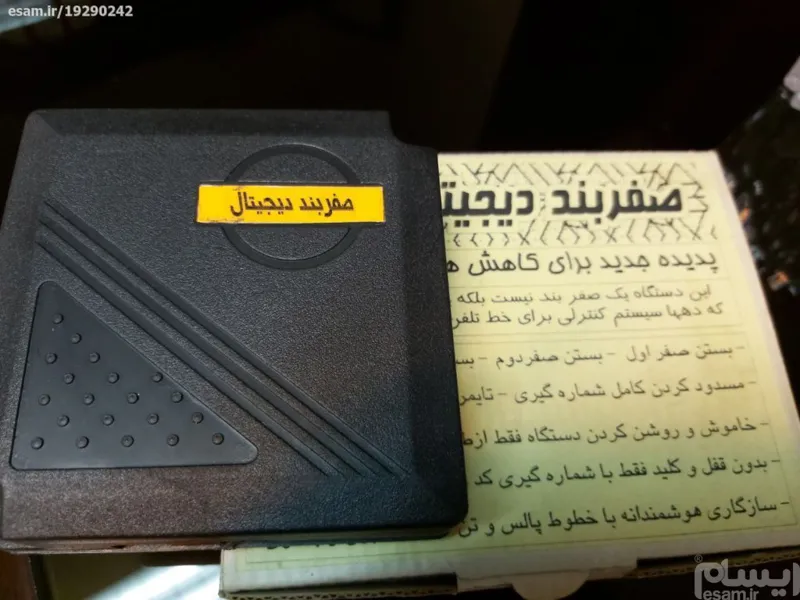 esam.ir/19290242
صفربند دیجیتال
صفربند دیجیت
پدیده جدید برای کاهش
این دستگاه یک صفر بند نیست بلکه
که دهها سیستم کنترلی برای خط تلفن
- بستن صفر اول - بستن صفردوم -
- مسدود کردن کامل شماره گیری - تایمر
- خاموش و روشن کردن دستگاه فقط از
- بدون قفل و کلید فقط با شماره گیری کد
- سازگاری هوشمندانه با خطوط پالس و تن
ایسام
esam.ir